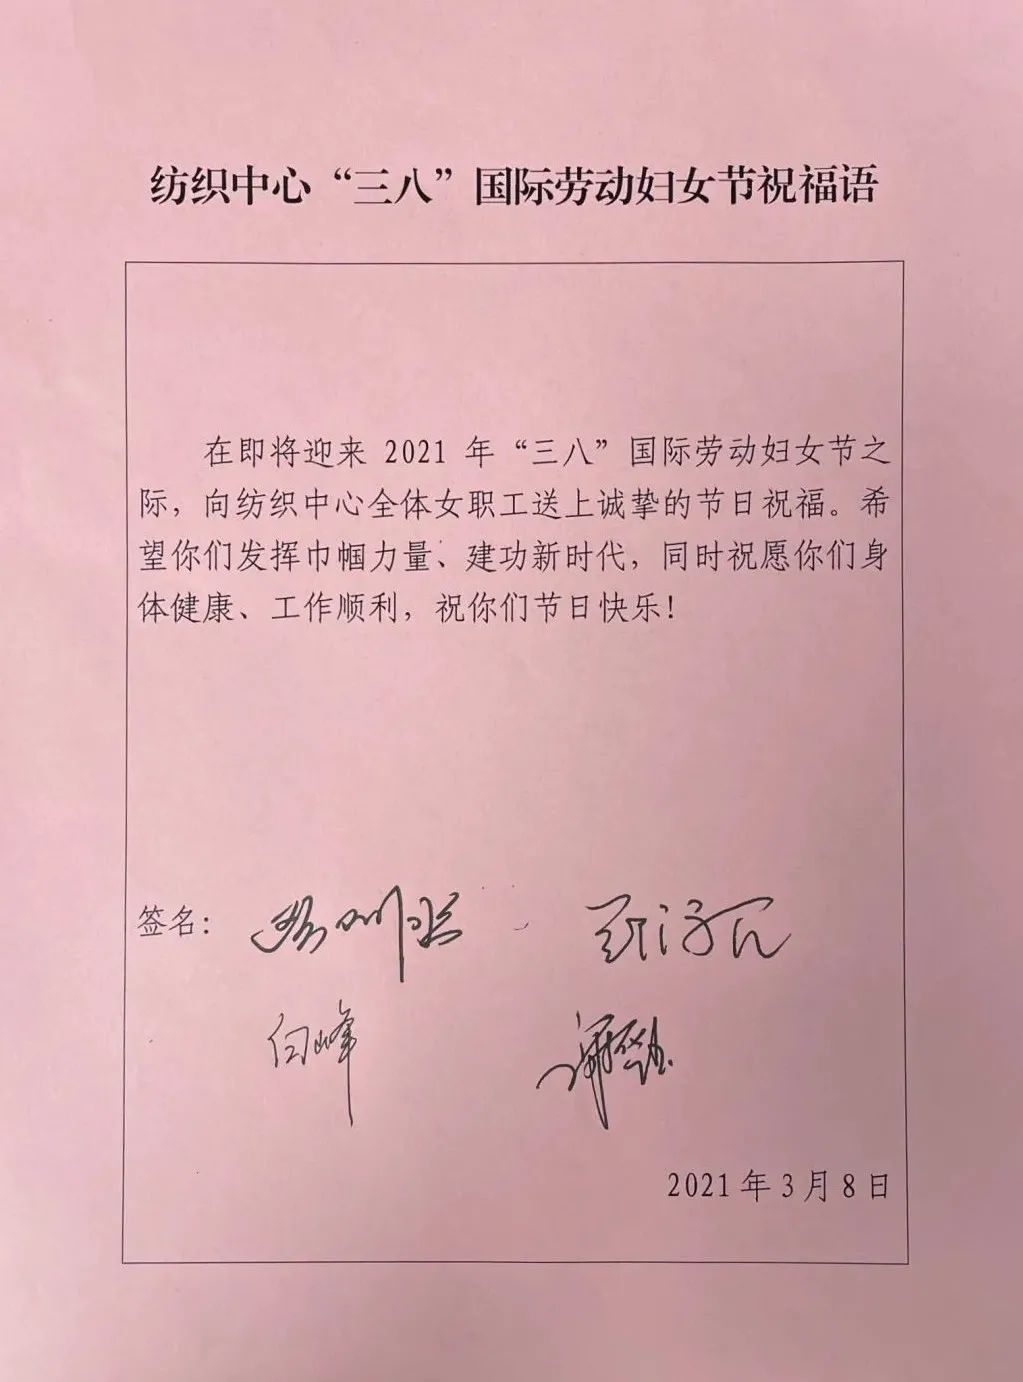 纺织中心“三八”国际劳动妇女节祝福语
在即将迎来 2021 年“三八”国际劳动妇女节之
际，向纺织中心全体女职工送上诚挚的节日祝福。希
望你们发挥巾帼力量、建功新时代，同时祝愿你们身
体健康、工作顺利，祝你们节日快乐！
签名：
白峰
2021 年 3 月 8 日